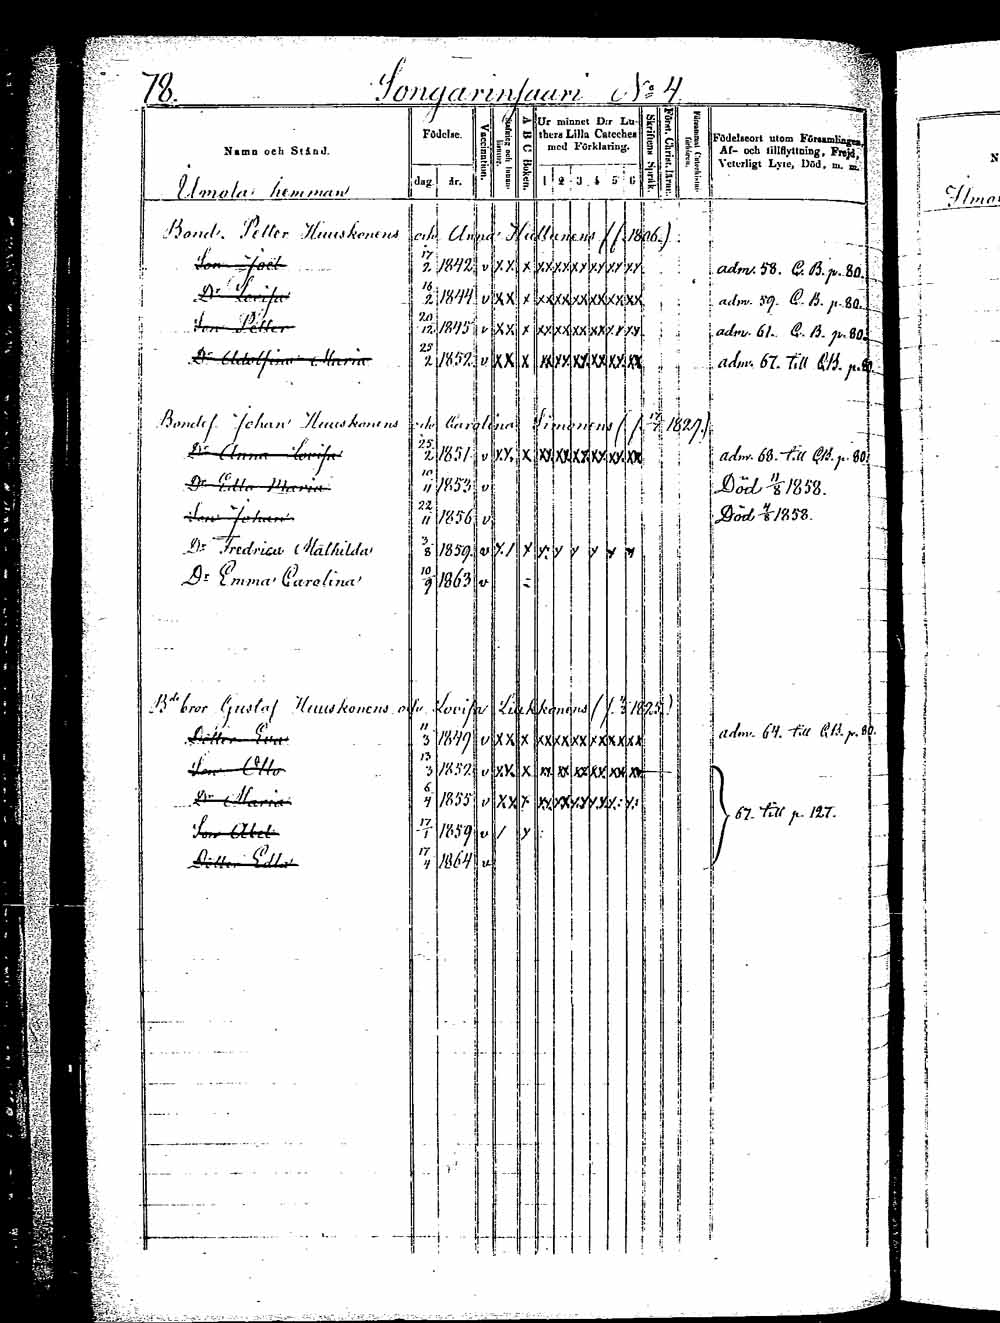 78. Songarinsaari No 4
Namn och Stånd.
Födelse.
dag. år.
Vaccination.
A B C Boken.
Ur minnet D:r Luthers Lilla Cateches med Förklaring.
1 2 3 4 5 6
Skriftens Språk.
Födelseort utom Församlingen, Af- och tillflyttning, Frejd, Veterligt Lyte, Död, m. m.
Ilmola hemman
Bond. Petter Huuskonens och Anna Hallunens (f. 1806.)
Son Joel 17/2 1842 v xx x xx xx xx xx xx xx adm. 58. C. B. p. 80.
Dr Lovisa 16/2 1844 v xx x xx xx xx xx xx xx adm. 59. C. B. p. 80.
Son Petter 20/12 1845 v xx x xx xx xx xx xx xx adm. 61. C. B. p. 80.
Dr Adolfina Maria 25/2 1852 v xx x xx xx xx xx xx xx adm. 67. till C.B. p. 80
Bondes. Johan Huuskonens och Carolina Simonens (f. 1827.)
Dr Anna Lovisa 25/2 1851 v xx x xx xx xx xx xx xx adm. 68. till C.B. p. 80.
Dr Edla Maria 10/11 1853 v Död 11/8 1858.
Son Johan 22/11 1856 v Död 4/8 1858.
Dr Fredrica Mathilda 3/8 1859. v x / x x x x x x x
Dr Emma Carolina 10/9 1863 v
Bde bror Gustaf Huuskonens och Lovisa Liukkonens (f. 1825.)
Dotter Eva 11/3 1849 v xx x xx xx xx xx xx xx adm. 64. till C.B. p. 80.
Son Otto 13/3 1852 v xx x xx xx xx xx xx xx
Dr Maria 6/4 1855 v xx x xx xx xx xx x x
67. till p. 127.
Son Abel 17/1 1859 v / x
Dotter Edla 17/4 1864 v